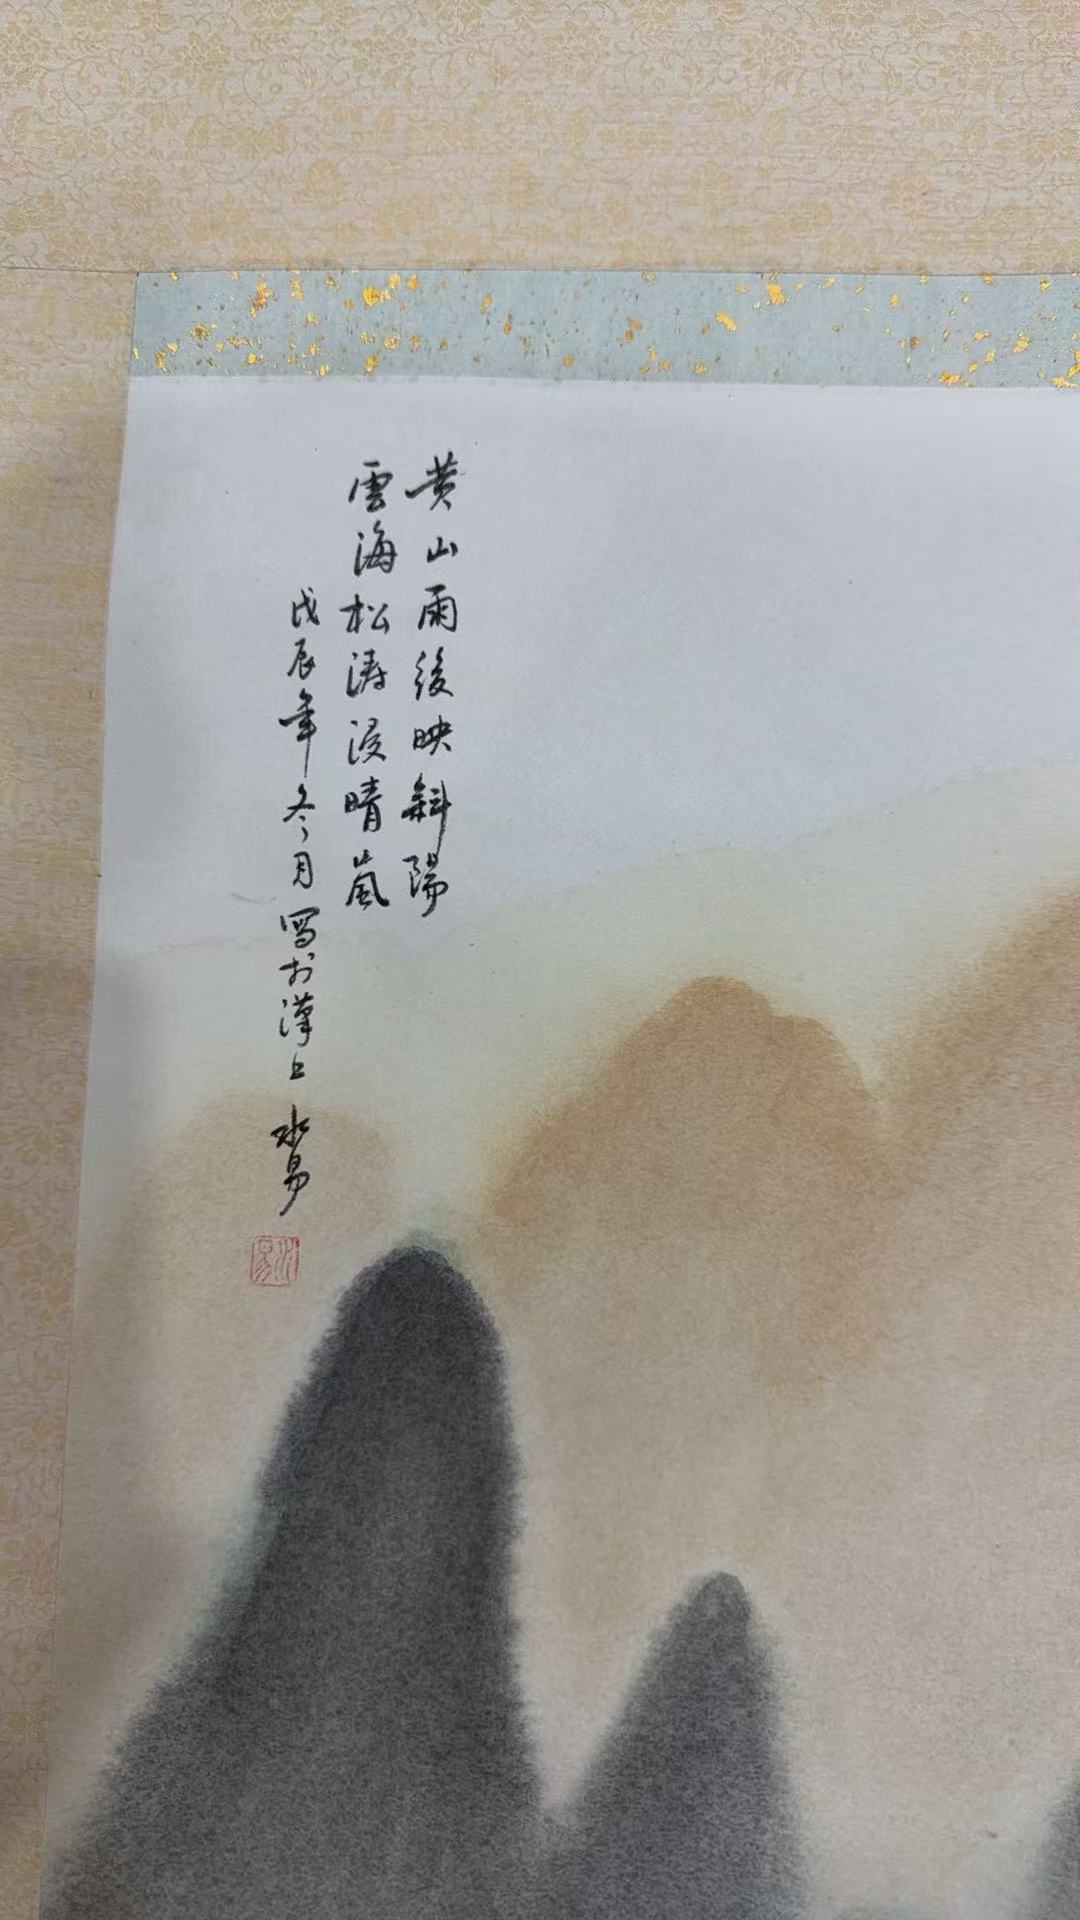 黄山雨後映斜陽
雲海松涛浸晴嵐
戊辰年冬月写於漢上 水易
水易